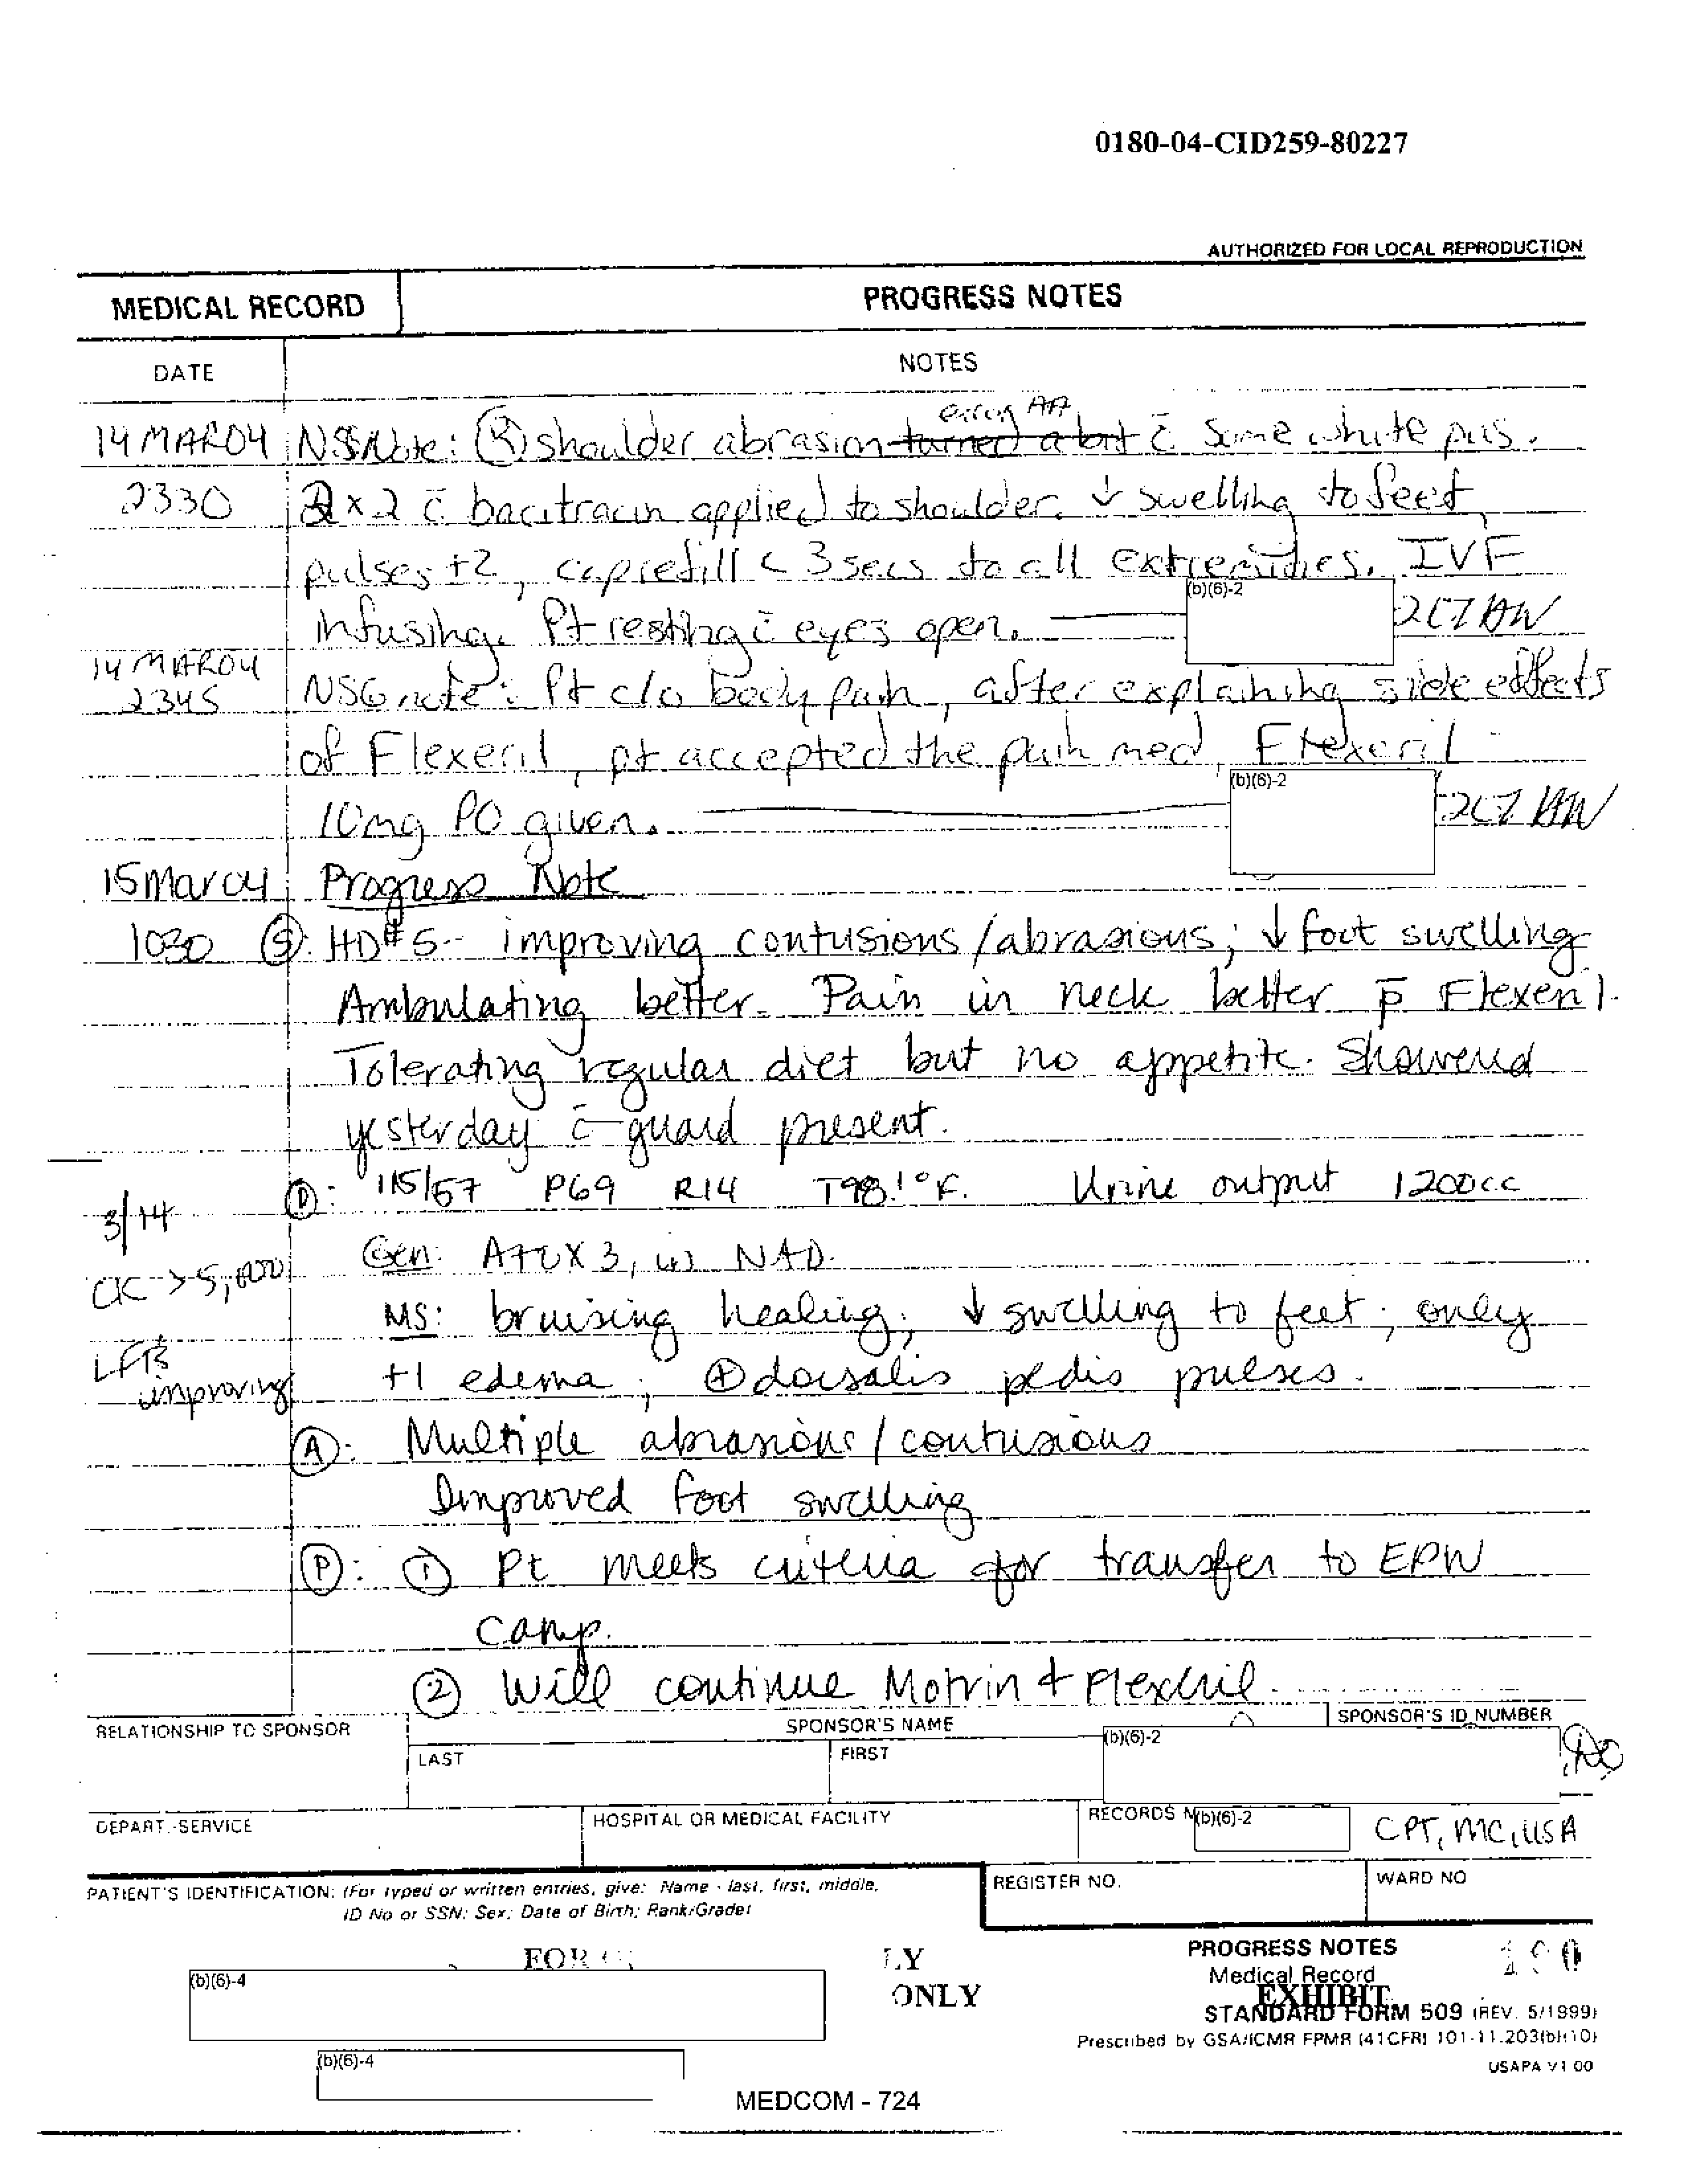 0180-04-CID259-80227
AUTHORIZED FOR LOCAL REPRODUCTION
MEDICAL RECORD
PROGRESS NOTES
DATE
NOTES
error AA
14MAR04 NSGNote: (R) shoulder abrasion turned a bit c̄ some white pus.
2330 2x2 c̄ bacitracin applied to shoulder. ↓ swelling to feet,
pulses +2, caprefill < 3 secs to all extremities. IVF
(b)(6)-2
infusing. Pt resting c̄ eyes open.
14 MAR04
2345 NSG note: Pt c/o body pain, after explaining side effects
of Flexeril, pt accepted the pain med. Flexeril
(b)(6)-2
10mg PO given.
15Mar04 Progress Note
1030 (S): HD#5 - improving contusions/abrasions; ↓ foot swelling
Ambulating better. Pain in neck better p̄ Flexeril.
Tolerating regular diet but no appetite. Showered
yesterday c̄ guard present.
3/14 (O): 115/57 P69 R14 T98.1°F. Urine output 1200cc
Gen: A+OX3, in NAD.
CK ->5,000
MS: bruising healing; ↓ swelling to feet; only
LFTs
improving +1 edema; ⊕ dorsalis pedis pulses.
(A): Multiple abrasions/contusions
Improved foot swelling
(P): (1) Pt meets criteria for transfer to EPW
camp.
(2) Will continue Motrin + Flexeril.
RELATIONSHIP TO SPONSOR
SPONSOR'S NAME
SPONSOR'S ID NUMBER
LAST
FIRST
(b)(6)-2
DO
DEPART.-SERVICE
HOSPITAL OR MEDICAL FACILITY
RECORDS M
(b)(6)-2
CPT, MC, USA
PATIENT'S IDENTIFICATION: (For typed or written entries, give: Name - last, first, middle,
ID No or SSN; Sex; Date of Birth; Rank/Grade)
REGISTER NO.
WARD NO
FOR LY
ONLY
(b)(6)-4
(b)(6)-4
PROGRESS NOTES
Medical Record
EXHIBIT
STANDARD FORM 509 (REV. 5/1999)
Prescribed by GSA/ICMR FPMR (41CFR) 101-11.203(b)(10)
USAPA V1 00
MEDCOM - 724